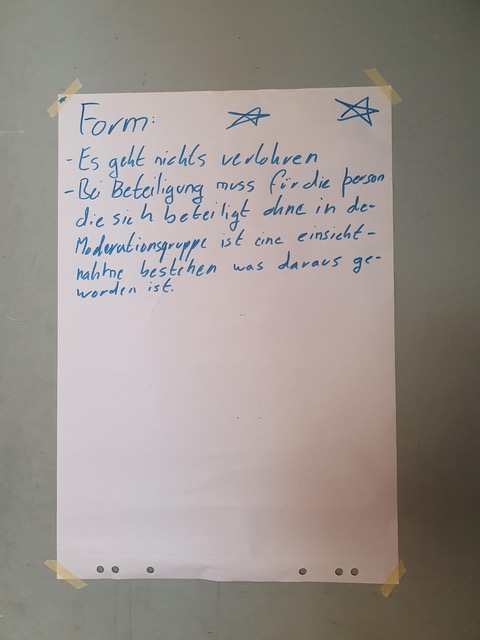 Form:
- Es geht nichts verlohren
- Bei Beteiligung muss für die person
die sich beteiligt ohne in de-
Moderationsgruppe ist eine einsicht-
nahme bestehen was daraus ge-
worden ist.